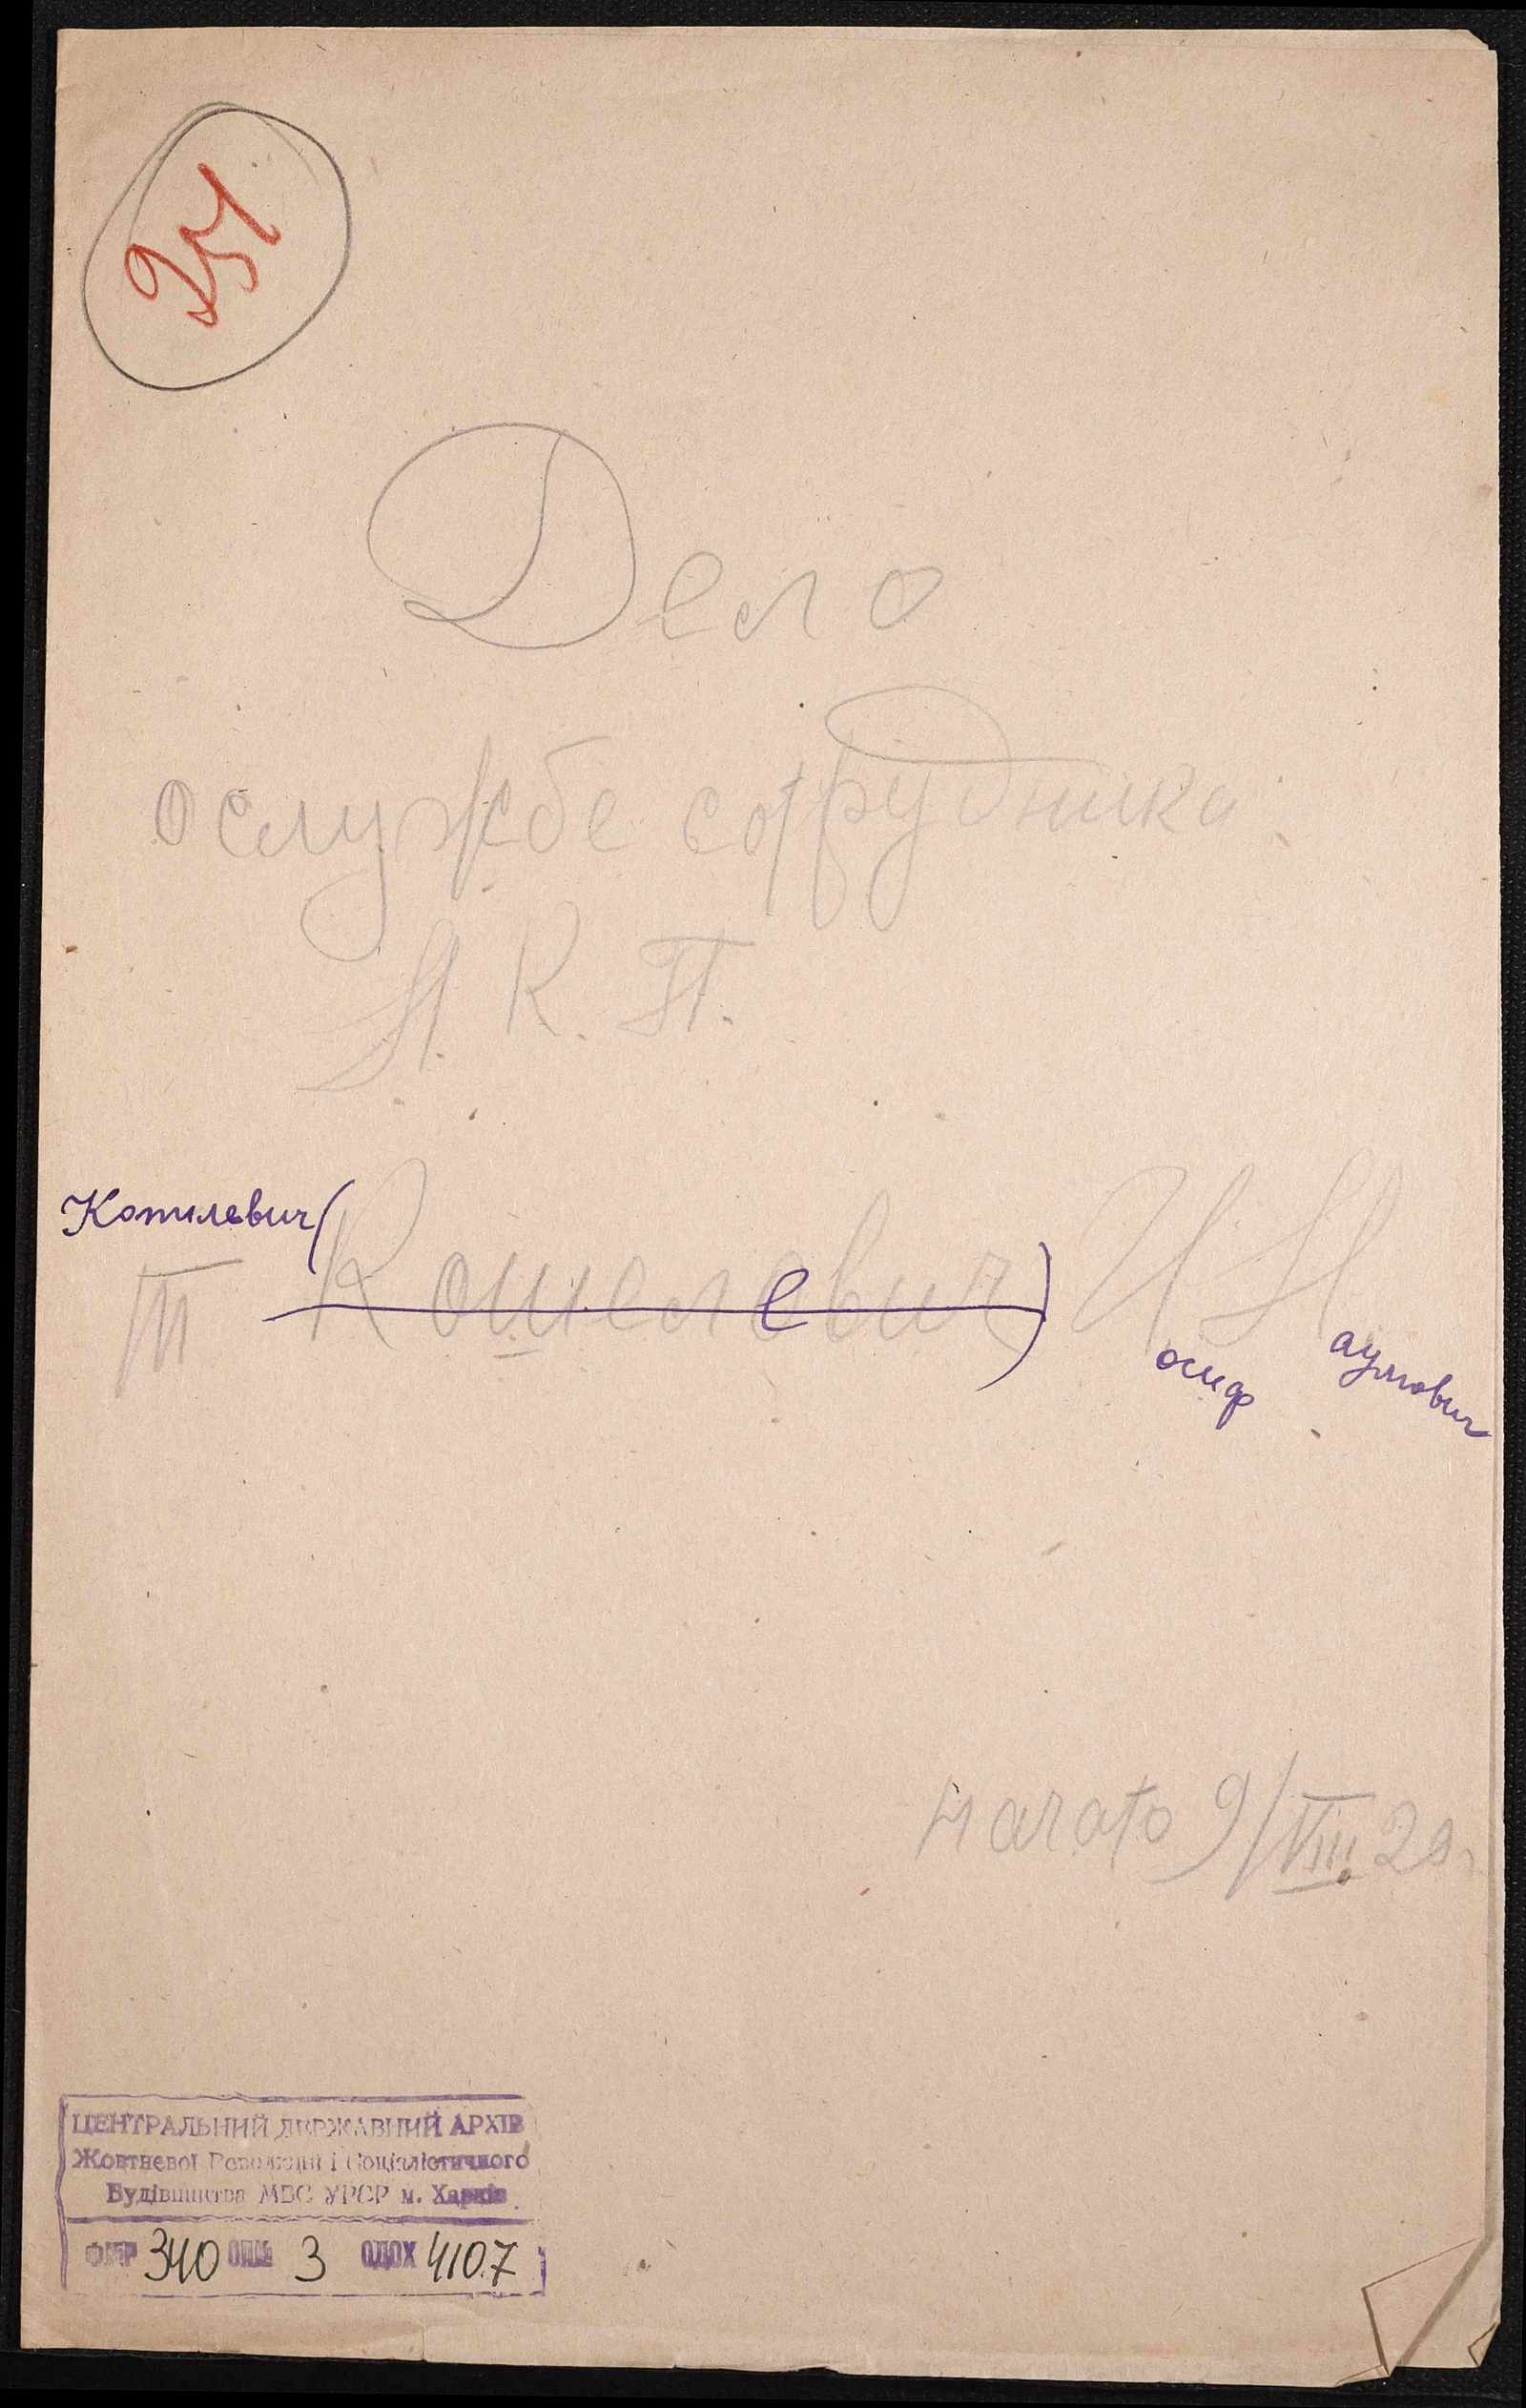 251
Дело
о службе сотрудника
Н. К. П.
Копилевич (
Кошелевич) И. Н
осиф аумович
начато 9/VIII. 20 г.
ЦЕНТРАЛЬНИЙ ДЕРЖАВНИЙ АРХІВ
Жовтневої Революції і Соціалістичного
Будівництва МВС УРСР м. Харків
340 3 ОДОХ 4107